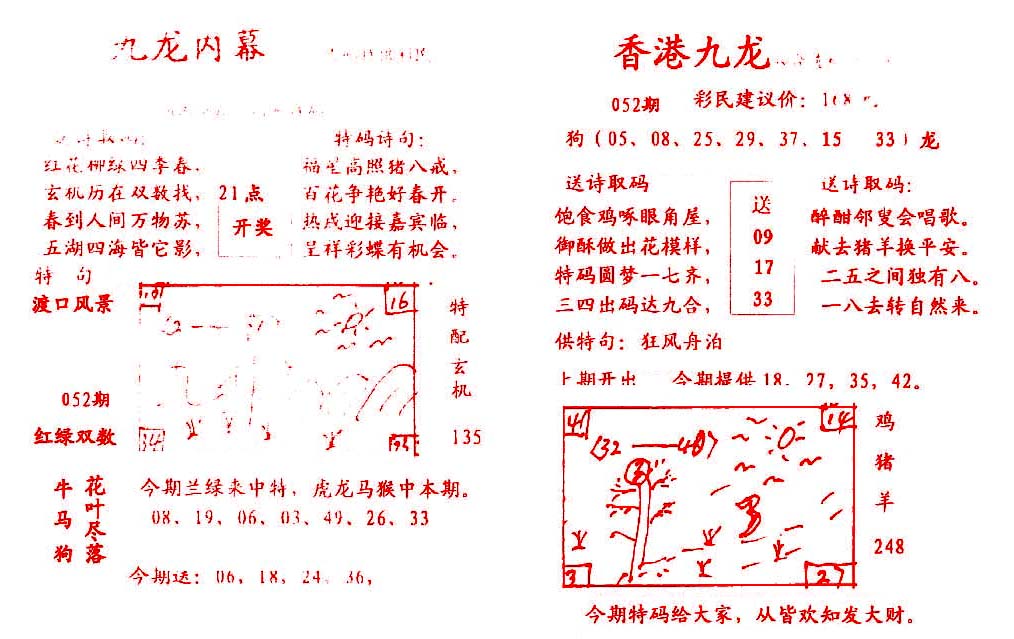 九龙内幕
特码诗句：
红花柳绿四季春，
玄机历在双数找，
春到人间万物苏，
五湖四海皆它影，
21点
开奖
福星高照猪八戒，
百花争艳好春开。
热戌迎接嘉宾临，
呈祥彩蝶有机会。
特 句
渡口风景
16
特配玄机
052期
红绿双数
135
牛马狗
花叶尽落
今期兰绿来中特，虎龙马猴中本期。
08、19、06、03、49、26、33
今期送：06，18，24、36，
香港九龙
052期
彩民建议价：
狗（05、08、25、29、37、15 33）龙
送诗取码
饱食鸡啄眼角屋，
御酥做出花模样，
特码圆梦一七齐，
三四出码达九合，
送
09
17
33
送诗取码：
醉酣邻叟会唱歌。
献去猪羊换平安。
二五之间独有八。
一八去转自然来。
供特句：狂风舟泊
上期开出 今期提供18、27，35，42。
41
14
（32——40）
3
3
27
鸡
猪
羊
248
今期特码给大家，从皆欢知发大财。